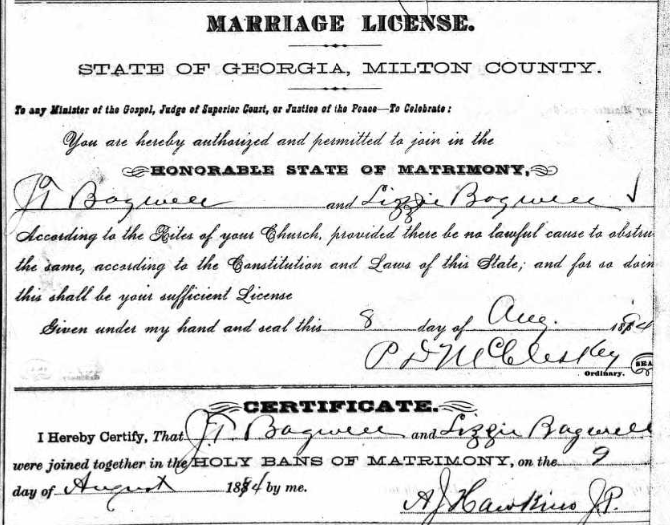 MARRIAGE LICENSE.
STATE OF GEORGIA, MILTON COUNTY.
To any Minister of the Gospel, Judge of Superior Court, or Justice of the Peace—To Celebrate:
You are hereby authorized and permitted to join in the
HONORABLE STATE OF MATRIMONY,
JT Bagwell and Lizzie Bagwell
According to the Rites of your Church, provided there be no lawful cause to obstru
the same, according to the Constitution and Laws of this State; and for so doin
this shall be your sufficient License
Given under my hand and seal this 8 day of Aug. 1884
P D McCleskey SEA
Ordinary.
CERTIFICATE.
I Hereby Certify, That J.T. Bagwell and Lizzie Bagwell
were joined together in the HOLY BANS OF MATRIMONY, on the 9
day of August 1884 by me.
AJ Hawkins J.P.